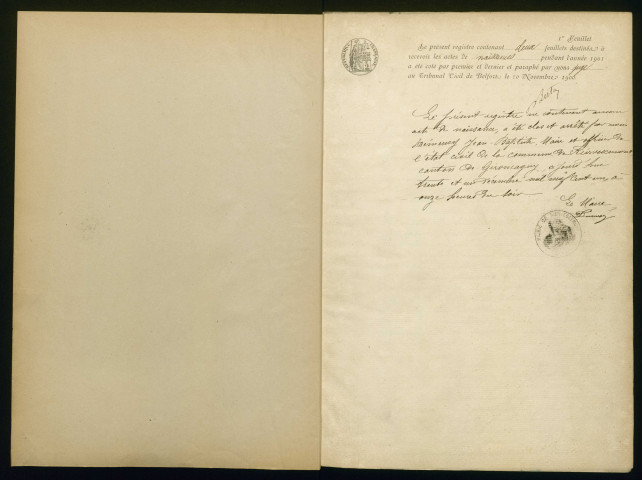 1er Feuillet
Le présent registre contenant deux feuillets destinés à
recevoir les actes de naissances pendant l'année 1901
a été coté par premier et dernier et paraphé par nous juge
au Tribunal Civil de Belfort, le 10 Novembre 1900
Le présent registre ne contenant aucun
acte de naissance, a été clos et arrêté par nous
Jean Baptiste, Maire et officier de
l'état civil de la commune de
canton de Giromagny, ajourd'hui
trente et un décembre mil neuf cent un, à
onze heures du soir
Le Maire